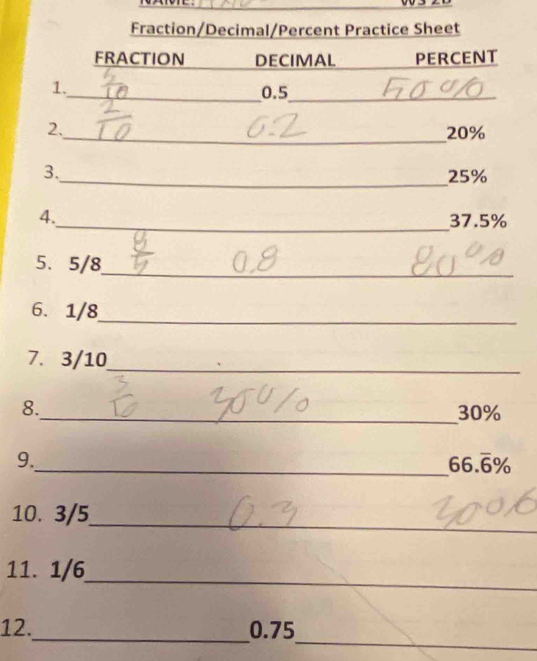 Fraction/Decimal/Percent Practice Sheet
FRACTION DECIMAL PERCENT
1. 5/10 0.5 50%
2. 2/10 0.2 20%
3. 25%
4. 37.5%
5. 5/8 0.8 80%
6. 1/8
7. 3/10
8. 3/10 30% 30%
9. 66.6̅%
10. 3/5 0.3
11. 1/6
12. 0.75